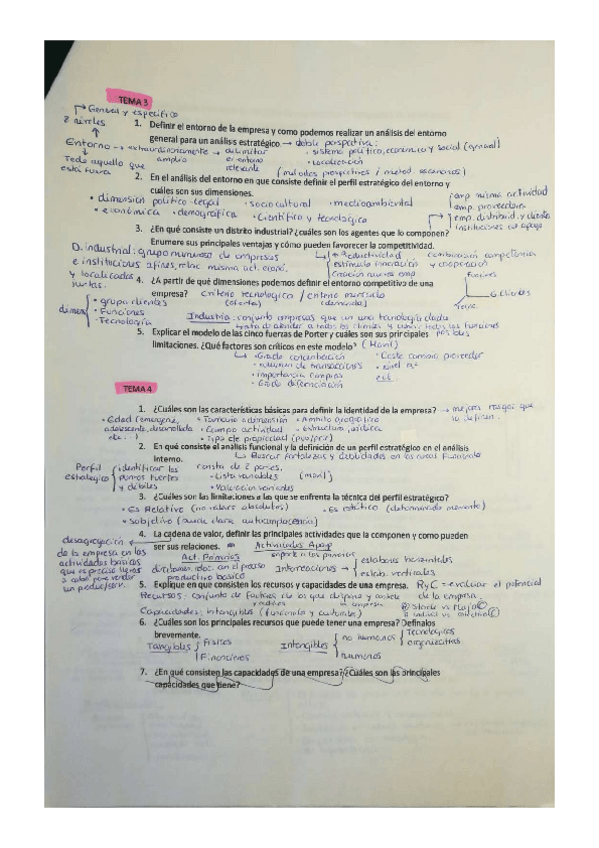 TEMA 3
General y específico
2 niveles
1. Definir el entorno de la empresa y como podemos realizar un análisis del entorno
general para un análisis estratégico. → doble perspectiva:
Entorno → extraordinariamente → delimitar · sistema político, económico y social (general)
amplio el entorno · localización
Todo aquello que relevante (métodos prospectivos / método escenarios)
está fuera
2. En el análisis del entorno en que consiste definir el perfil estratégico del entorno y
cuáles son sus dimensiones.
• dimensión político-legal • sociocultural • medioambiental
• económica • demográfica • Científica y tecnológica
emp. misma actividad
emp. proveedoras
emp. distribuid. y clientes
instituciones de apoyo
3. ¿En qué consiste un distrito industrial? ¿cuáles son los agentes que lo componen?
Enumere sus principales ventajas y cómo pueden favorecer la competitividad.
D. industrial: grupo numeroso de empresas ↑ Productividad combinación competencia
e instituciones afines, misma act. econó. estímulo innovación y cooperación
y localizadas creación nuevas emp
juntas.
4. ¿A partir de qué dimensiones podemos definir el entorno competitivo de una
empresa? criterio tecnológico / criterio mercado
(oferta) (demanda)
Funciones
G. Clientes
Tecno.
dimens • grupo clientes
• Funciones
• Tecnología
Industria: conjunto empresas que con una tecnología dada
trata de atender a todos los clientes y cubrir todas las funciones
5. Explicar el modelo de las cinco fuerzas de Porter y cuáles son sus principales
limitaciones. ¿Qué factores son críticos en este modelo? (Movil)
• Grado concentración • Coste cambio proveedor
• volumen de transacciones
• importancia compras etc.
• Grado diferenciación
TEMA 4
1. ¿Cuáles son las características básicas para definir la identidad de la empresa? → mejores rasgos que
la definen.
• Edad (emergente, • Tamaño dimensión • Ámbito geográfico
adolescente, desarrollada • Campo actividad • Estructura jurídica
etc...) • Tipo de propiedad (púb/priv)
2. En qué consiste el análisis funcional y la definición de un perfil estratégico en el análisis
interno. Buscar fortalezas y debilidades en las áreas funcionales
Perfil identificar los consta de 2 partes.
estratégico puntos fuertes • Lista variables (movil)
y débiles • Valoración variables
3. ¿Cuáles son las limitaciones a las que se enfrenta la técnica del perfil estratégico?
• Es Relativo (no valores absolutos) • Es estático (determinado momento)
• Subjetivo
4. La cadena de valor, definir las principales actividades que la componen y como pueden
ser sus relaciones. Actividades Apoyo
desagregación
de la empresa en las
actividades básicas
que es preciso llevar
a cabo para vender
un producto/serv.
Act. Primarias soporte a las primarias
directamen. relac. con el proceso Interrelaciones → eslabones horizontales
productivo básico eslab. verticales
5. Explique en que consisten los recursos y capacidades de una empresa. RyC = evaluar el potencial
de la empresa.
Recursos: conjunto de factores de los que dispone y controla
la empresa
Capacidades: intangibles
6. ¿Cuáles son los principales recursos que puede tener una empresa? Defínalos
brevemente.
Tangibles Físicos Intangibles no humanos Tecnológicos
Financieros humanos organizativos
7. ¿En qué consisten las capacidades de una empresa? ¿Cuáles son las principales
capacidades que tiene?